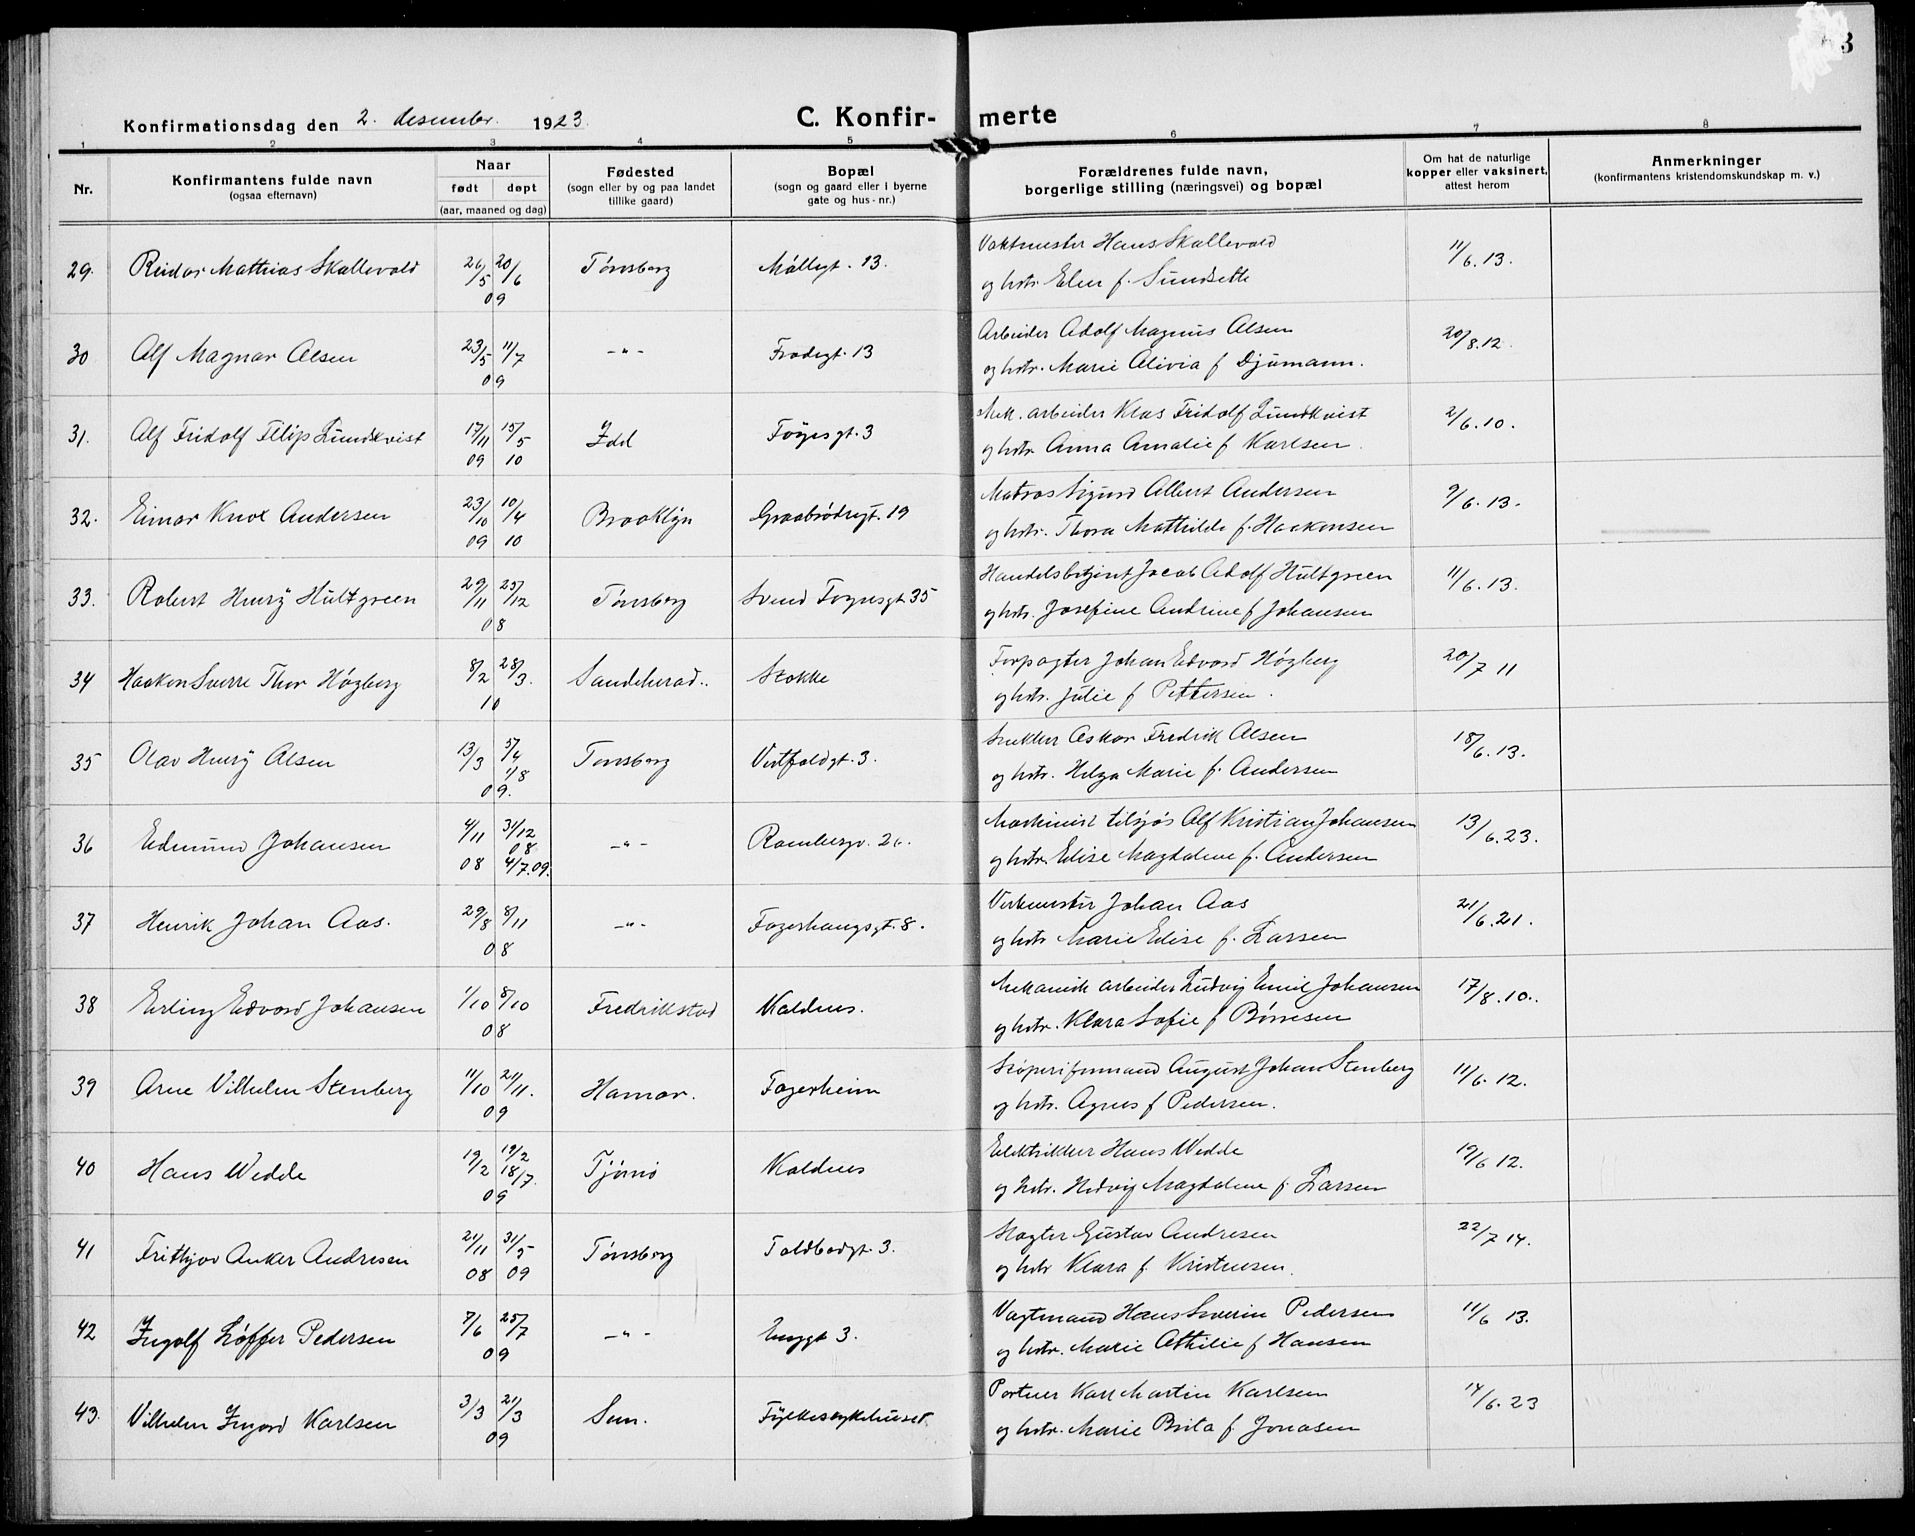 Konfirmationsdag den 2. desember. 1923.
C. Konfir- merte
3
1 2 3 4 5 6 7 8
Nr.
Konfirmantens fulde navn
(ogsaa efternavn)
Naar
født døpt
(aar, maaned og dag)
Fødested
(sogn eller by og paa landet
tillike gaard)
Bopæl
(sogn og gaard eller i byerne
gate og hus-nr.)
Forældrenes fulde navn,
borgerlige stilling (næringsvei) og bopæl
Om hat de naturlige
kopper eller vaksinert,
attest herom
Anmerkninger
(konfirmantens kristendomskundskap m. v.)
29. Reidar Mathias Skallevold 26/5 20/6 09 Tønsberg Møllegt. 13. Vaktmester Hans Skallevold 11/6.13.
og hstr. Elen f. Sundsette
30 Alf Magnar Olsen 23/5 11/7 09 -"- Frodegt. 13 Arbeider Adolf Magnus Olsen 20/8.12.
og hstr. Marie Olivia f Djumann.
31. Alf Fridolf Filip Lundkvist 17/11 09 15/5 10 Idd Føynsgt. 3 Mek. arbeider Klas Fridolf Lundkvist 2/6.10.
og hstr Anna Amalie f Karlsen.
32. Einar Knox Andersen 23/10 09 10/4 10 Brooklyn Graabrødregt. 19 Matros Sigurd Albert Andersen 9/6.13.
og hstr. Thora Mathilde f. Haakonsen
33. Robert Henry Hultgreen 29/11 25/12 08 Tønsberg Svend Foynsgt 35 Handelsbetjent Jacob Adolf Hultgreen 11/6.13.
og hstr. Josefine Andrine f Johansen
34 Haakon Sverre Thor Høgberg 8/2 28/3. 10 Sandeherad.. Stokke Forpagter Johan Edvard Høgberg 20/7 11
og hstr. Julie f Pettersen.
35 Olav Henry Olsen 13/3 5/4 1/8 09. Tønsberg Vestfoldgt. 3. Snekker Oskar Fredrik Olsen 18/6.13.
og hstr. Helga Marie f. Andersen
36 Edmund Johansen 4/11 08 31/12 08 4/7.09. -"- Rambergv. 26. Maskinist tilsjøs Alf Kristian Johansen 13/6.23.
og hstr. Elise Magdalene f. Andersen
37 Henrik Johan Aas. 29/8 8/11 08 -"- Fagerhaugsgt. 8. Verkmester Johan Aas 21/6.21.
og hstr Marie Elise f. Larsen
38 Erling Edvard Johansen 1/10 8/10 08 Fredrikstad Kaldnes. Mekanisk arbeider Ludvig Emil Johansen 17/8.10..
og hstr. Klara Sofie f Børresen
39 Arne Vilhelm Stenberg 11/10 21/11. 09 Hamar. Fagerheim Støperiformand August Johan Stenberg 11/6.12.
og hstr. Agnes f Pedersen.
40 Hans Wedde 19/2 19/2 18/7. 09 Tjømø Kaldnes Elektriker Hans Wedde 19/6 12.
og hstr. Hedvig Magdalene f. Larsen
41 Frithjov Anker Andresen 21/11 08 31/5 09 Tønsberg Toldbodgt. 3. Slagter Gustav Andresen 22/7 14.
og hstr Klara f. Kristensen.
42 Ingolf Løffer Pedersen 7/6 25/7 09 -"- Enggt 3. Vagtmand Hans Severin Pedersen 11/6 13.
og hstr. Marie Othilie f Hansen
43. Vilhelm Ingard Karlsen 3/3 21/3 09 Sem. Fylkessykehuset. Portner Karl Martin Karlsen 14/6.23
og hstr. Marie Brita f. Jonasen